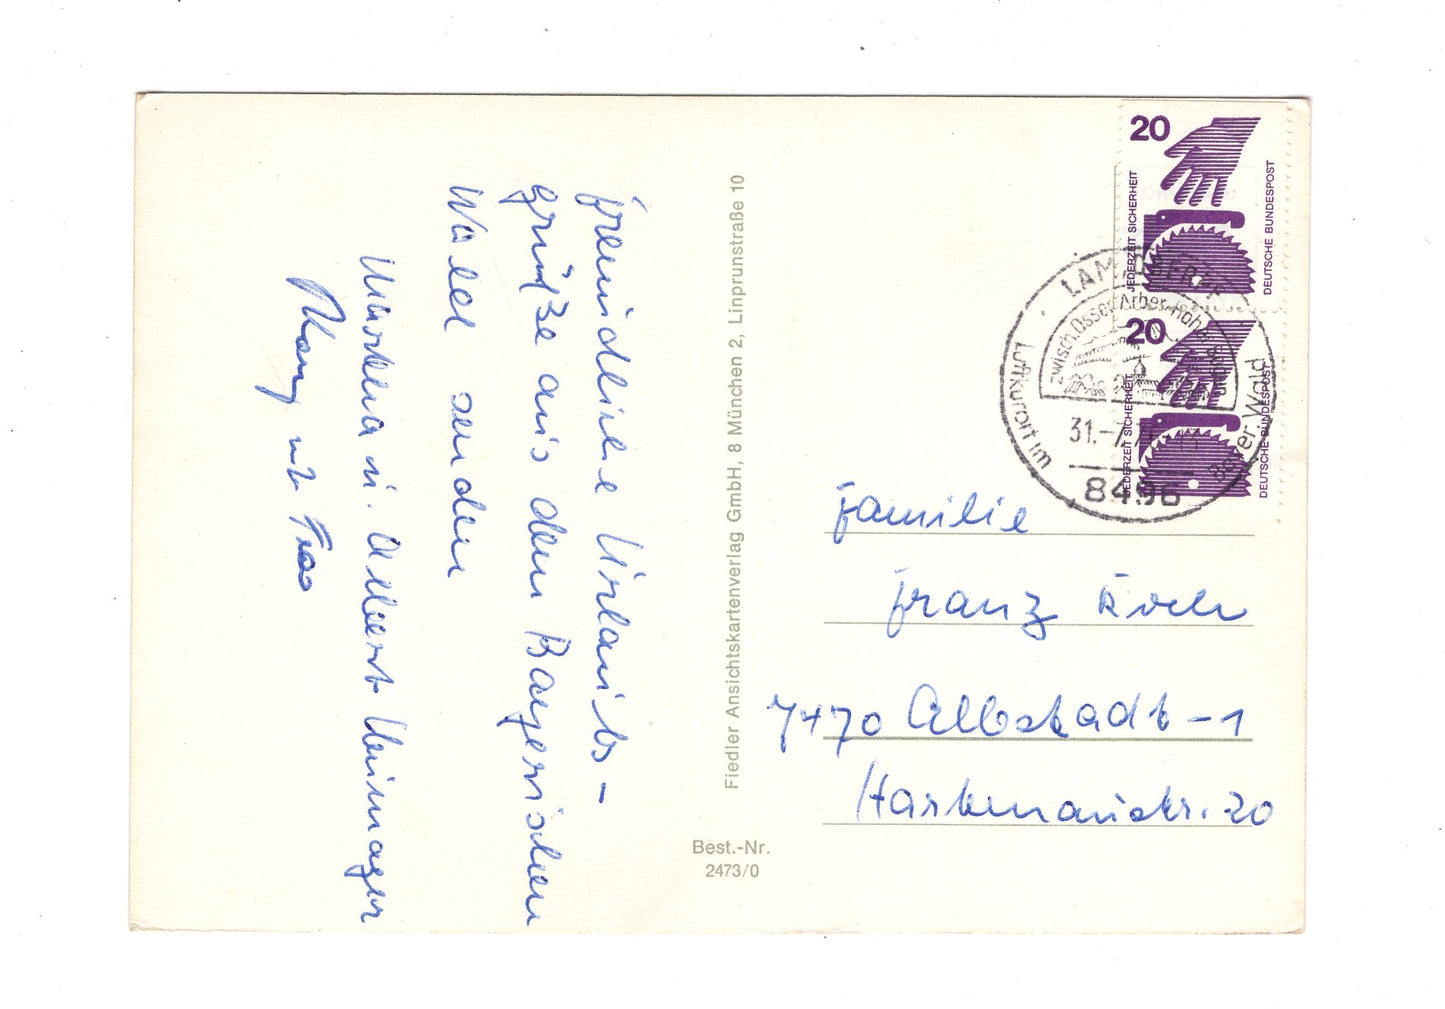 freundliche Urlaubs-
grüße aus dem Bayerischen
Wald senden
u. Albert
u. Frau
Fiedler Ansichtskartenverlag GmbH, 8 München 2, Linprunstraße 10
Best.-Nr.
2473/0
20
JEDERZEIT SICHERHEIT
DEUTSCHE BUNDESPOST
20
JEDERZEIT SICHERHEIT
DEUTSCHE BUNDESPOST
LAM
zwisch. Osser, Arber, Hohe
Luftkurort im Bayer Wald
31.-7.
8496
Familie
Franz Koch
7470 Albstadt-1
20